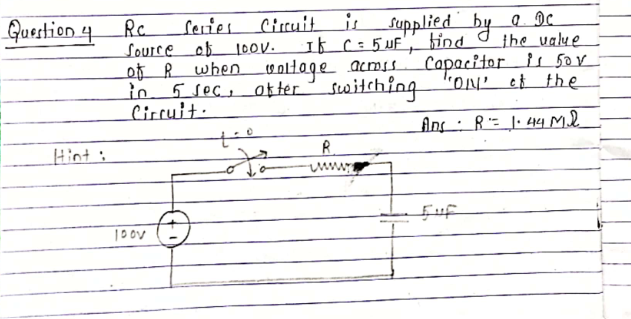 Question 4 Rc Series Circuit is supplied by a DC
Source of 100V. If C = 5 uF, find the value
of R when voltage across Capacitor is 50V
in 5 sec, after switching "ON" of the
Circuit.
Ans : R = 1.44 MΩ
Hint :
t = 0
R
100V
+
-
5 uF